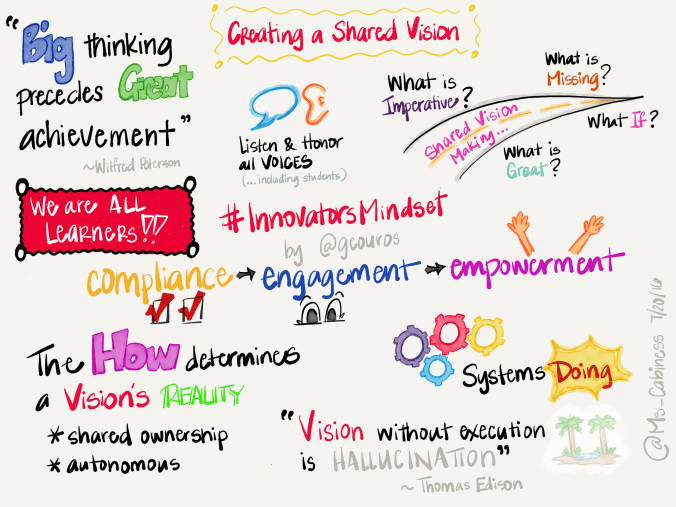 Creating a Shared Vision
"Big thinking
precedes Great
achievement"
~Wilfred Peterson
Listen & Honor
all VOICES
(...including students)
What is
Imperative?
What is
Missing?
Shared Vision
Making...
What If?
What is
Great?
We are ALL
Learners!!
#InnovatorsMindset
by @gcouros
compliance → engagement → empowerment
The How determines
a Vision's REALITY
* shared ownership
* autonomous
Systems Doing
"Vision without execution
is HALLUCINATION"
~ Thomas Edison
@Ms_Cabiness 7/20/16